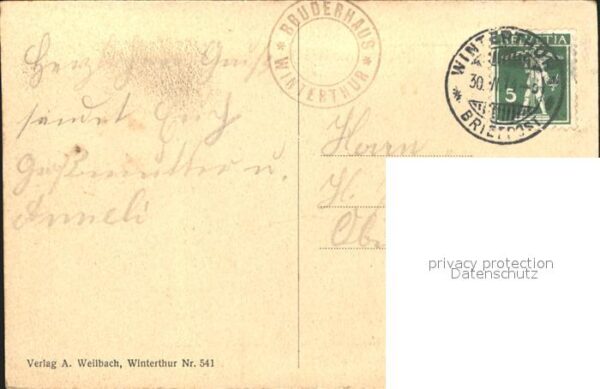 Herzlichen Gruß
sendet Euch
Großmutter u.
Anneli
* BRUDERHAUS *
WINTERTHUR
WINTERTHUR
30.
* BRIEFPOST *
HELVETIA
5
Herrn
H.
privacy protection
Datenschutz
Verlag A. Weilbach, Winterthur Nr. 541